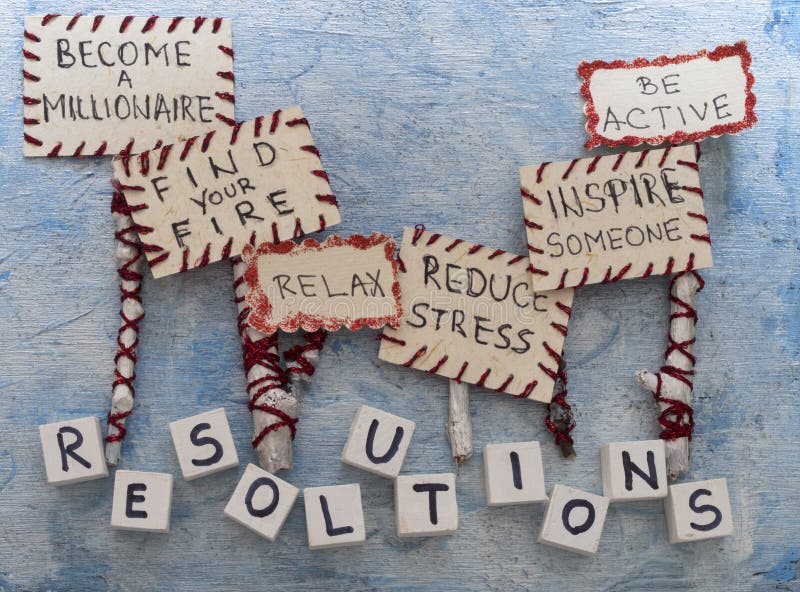 BECOME
A
MILLIONAIRE
FIND
YOUR
FIRE
RELAX
REDUCE
STRESS
INSPIRE
SOMEONE
BE
ACTIVE
RESOLUTIONS